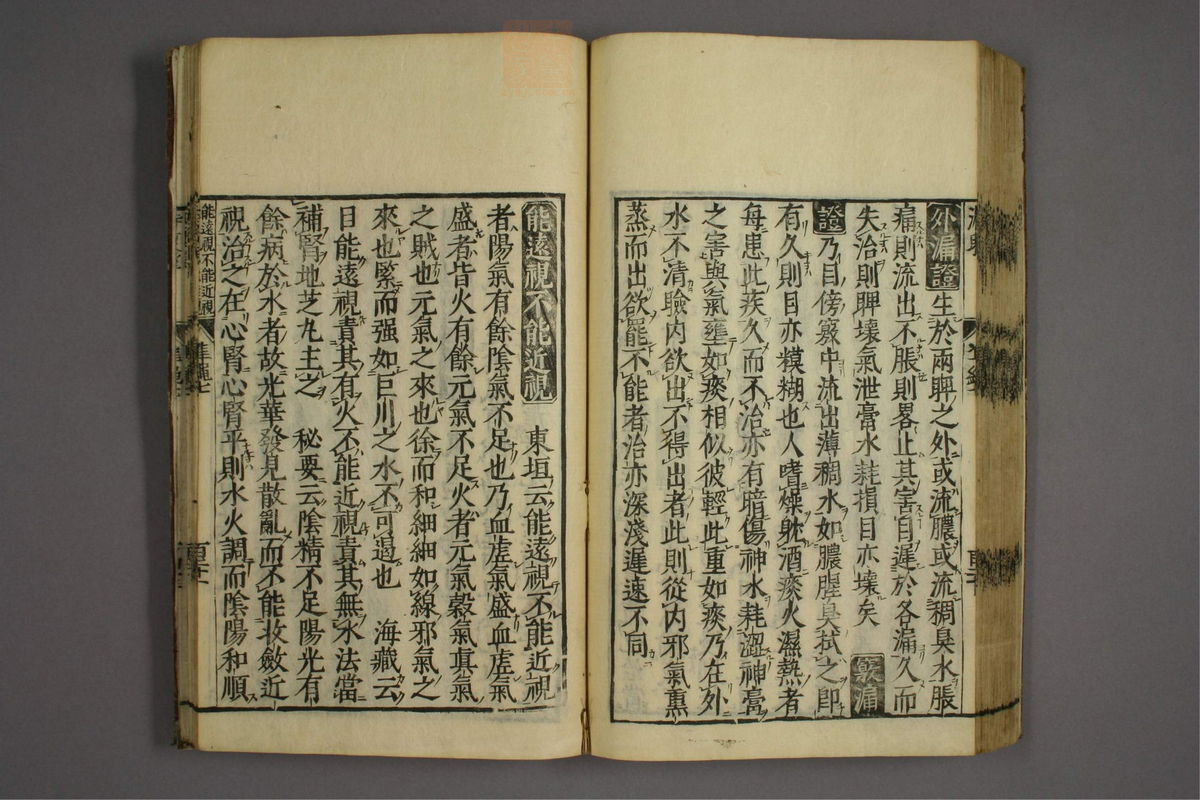 外漏證 生於兩睥之外或流膿或流稠臭水脹
痛則流出不脹則畧止其害目遲於各漏久而
失治則睥壞氣泄膏水耗損目亦壞矣 竅漏
證 乃目傍竅中流出薄稠水如膿腥臭拭之即
有久則目亦糢糊也人嗜燥躭酒痰火濕熱者
每患此疾久而不治亦有暗傷神水耗澀神膏
之害與氣壅如痰相似彼輕此重如痰乃在外
水不清瞼內欲出不得出者此則從內邪氣熏
蒸而出欲罷不能者治亦深淺遲速不同
能遠視不能近視 東垣云能遠視不能近視
者陽氣有餘陰氣不足也乃血虛氣盛血虛氣
盛者皆火有餘元氣不足火者元氣穀氣真氣
之賊也元氣之來也徐而和細細如線邪氣之
來也緊而强如巨川之水不可遏也 海藏云
目能遠視責其有火不能近視責其無水法當
補腎地芝丸主之 秘要云陰精不足陽光有
餘病於水者故光華發見散亂而不能收斂近
視治之在心腎心腎平則水火調而陰陽和順
能遠視不能近視